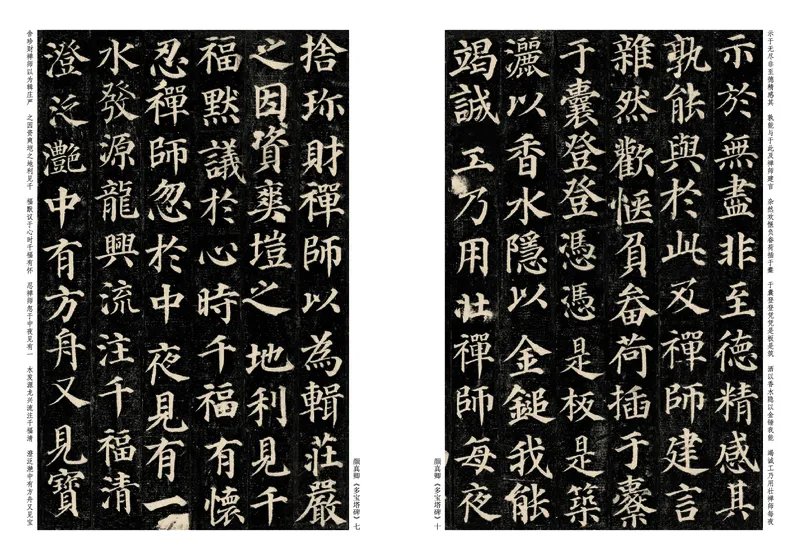 示于无尽非至德精感其 孰能与于此及禅师建言 杂然欢惬负畚荷插于橐 于囊登登凭凭是板是筑 洒以香水隐以金锤我能 竭诚工乃用壮禅师每夜
示於無盡非至德精感其
孰能與於此及禪師建言
雜然歡愜負畚荷插于橐
于囊登登憑憑是板是築
灑以香水隱以金鎚我能
竭誠工乃用壯禪師每夜
颜真卿《多宝塔碑》十
颜真卿《多宝塔碑》七
捨珎財禪師以為輯莊嚴
之因資爽塏之地利見千
福默議於心時千福有懷
忍禪師忽於中夜見有一
水發源龍興流注千福清
澄泛灩中有方舟又見寶
舍珍财禅师以为辑庄严 之因资爽垲之地利见千 福默议于心时千福有怀 忍禅师忽于中夜见有一 水发源龙兴流注千福清 澄泛滟中有方舟又见宝